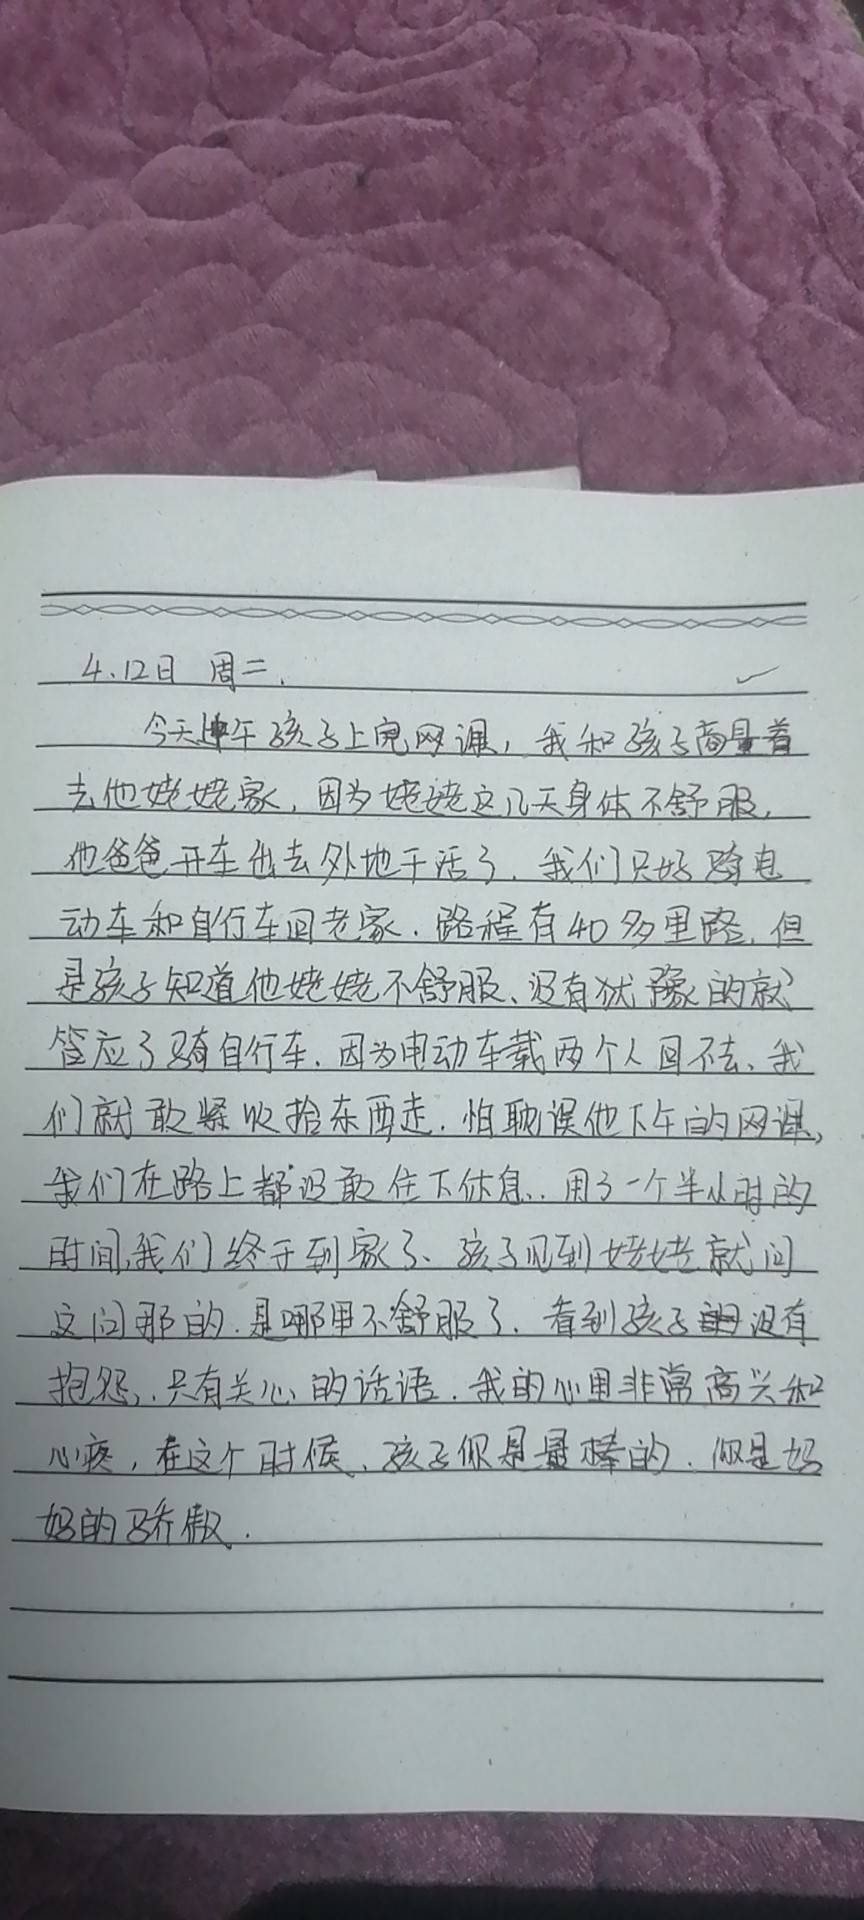 4.12日 周二.
今天上午孩子上完网课，我和孩子商量着
去他姥姥家，因为姥姥这几天身体不舒服，
他爸爸开车也去外地干活了．我们只好骑电
动车和自行车回老家．路程有40多里路，但
是孩子知道他姥姥不舒服、没有犹豫的就
答应了骑自行车．因为电动车载两个人回不去、我
们就敢紧收拾东西走．怕耽误他下午的网课，
我们在路上都没敢住下休息．．用了一个半小时的
时间，我们终于到家了、孩子见到姥姥就问
这问那的．是哪里不舒服了．看到孩子没有
抱怨，．只有关心的话语．我的心里非常高兴和
心疼，在这个时候、孩子你是最棒的．你是妈
妈的骄傲．